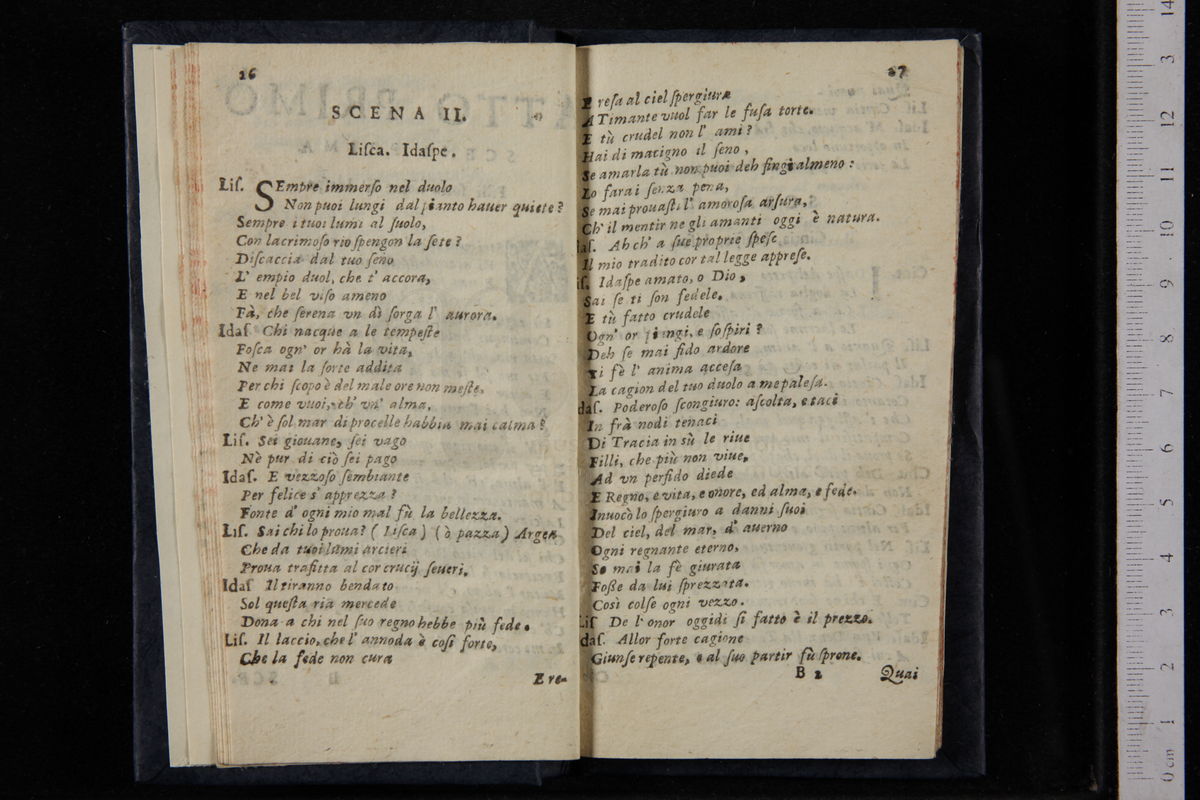 26
SCENA II.
Liſca. Idaſpe.
Liſ. SEmpre immerſo nel duolo
Non puoi lungi dal pianto hauer quiete?
Sempre i tuoi lumi al ſuolo,
Con lacrimoſo rio ſpengon la ſete?
Diſcaccia dal tuo ſeno
L' empio duol, che t' accora,
E nel bel viſo ameno
Fà, che ſerena vn dì ſorga l' aurora.
Idaſ Chi nacque a le tempeſte
Foſca ogn' or hà la vita,
Ne mai la ſorte addita
Per chi ſcopo è del male ore non meſte,
E come vuoi, ch' vn' alma,
Ch' è ſol mar di procelle habbia mai calma?
Liſ. Sei giouane, ſei vago
Nè pur di ciò ſei pago
Idaſ. E vezzoſo ſembiante
Per felice s' apprezza?
Fonte d' ogni mio mal fù la bellezza.
Liſ. Sai chi lo proua? (Liſca) (ò pazza) Argen
Che da tuoi lumi arcieri
Proua trafitta al cor crucij ſeueri.
Idaſ Il tiranno bendato
Sol queſta ria mercede
Dona a chi nel ſuo regno hebbe più fede.
Liſ. Il laccio, che l' annoda è coſì forte,
Che la fede non cura
E re-
27
E reſa al ciel ſpergiura
A Timante vuol far le fuſa torte.
E tù crudel non l' ami?
Hai di macigno il ſeno,
Se amarla tù non puoi deh fingi almeno:
Lo farai ſenza pena,
Se mai prouaſti l' amoroſa arſura,
Ch' il mentir ne gli amanti oggi è natura.
Idaſ. Ah ch' a ſue proprie ſpeſe
Il mio tradito cor tal legge appreſe.
Liſ. Idaſpe amato, o Dio,
Sai ſe ti ſon fedele,
E tù fatto crudele
Ogn' or piangi, e ſoſpiri?
Deh ſe mai fido ardore
Ti fè l' anima acceſa
La cagion del tuo duolo a me paleſa.
Idaſ. Poderoſo ſcongiuro: aſcolta, e taci
In frà nodi tenaci
Di Tracia in sù le riue
Filli, che più non viue,
Ad vn perfido diede
E Regno, e vita, e onore, ed alma, e fede.
Inuocò lo ſpergiuro a danni ſuoi
Del ciel, del mar, d' auerno
Ogni regnante eterno,
Se mai la fè giurata
Foſſe da lui ſprezzata.
Così colſe ogni vezzo.
Liſ De l' onor oggidi ſi fatto è il prezzo.
Idaſ. Allor forte cagione
Giunſe repente, e al ſuo partir fù ſprone.
B 2
Quai
0 cm 1 2 3 4 5 6 7 8 9 10 11 12 3 14